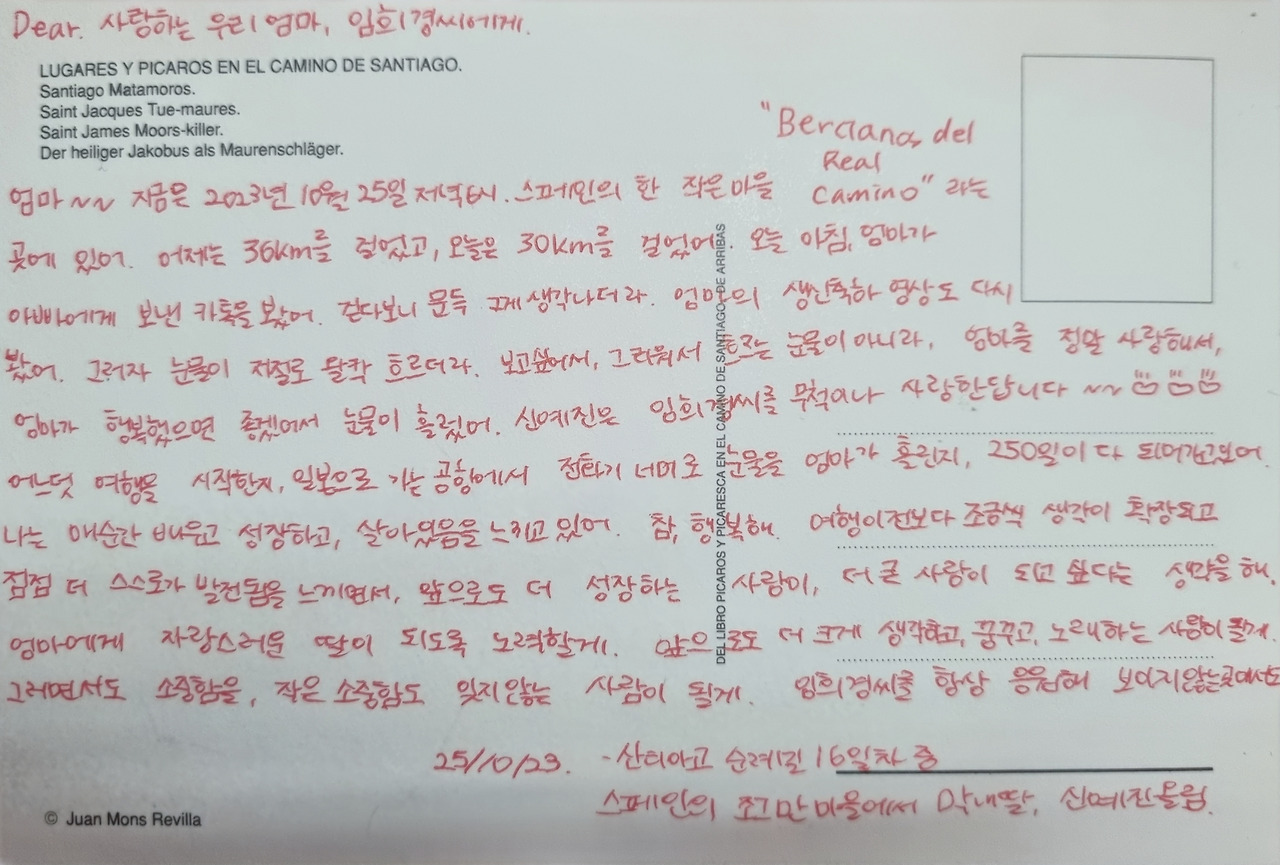 Dear. 사랑하는 우리 엄마, 임희경씨에게.
LUGARES Y PICAROS EN EL CAMINO DE SANTIAGO.
Santiago Matamoros.
Saint Jacques Tue-maures.
Saint James Moors-killer.
Der heiliger Jakobus als Maurenschläger.
"Bercianos del
Real
엄마~~ 지금은 2023년 10월 25일 저녁 6시. 스페인의 한 작은 마을 Camino" 라는
곳에 있어. 어제는 36km를 걸었고, 오늘은 30km를 걸었어. 오늘 아침, 엄마가
아빠에게 보낸 카톡을 봤어. 걷다보니 문득 그게 생각나더라. 엄마의 생신축하 영상도 다시
봤어. 그러자 눈물이 저절로 왈칵 흐르더라. 보고싶어서, 그리워서 흐르는 눈물이 아니라, 엄마를 정말 사랑해서,
엄마가 행복했으면 좋겠어서 눈물이 흘렀어. 신예진은 임희경씨를 무척이나 사랑한답니다 ~~
어느덧 여행을 시작한지, 일본으로 가는 공항에서 전화기 너머로 눈물을 엄마가 흘린지, 250일이 다 되어가고있어.
나는 매순간 배우고 성장하고, 살아있음을 느끼고 있어. 참, 행복해. 여행이전보다 조금씩 생각이 확장되고
점점 더 스스로가 발전됨을 느끼면서, 앞으로도 더 성장하는 사람이, 더 큰 사람이 되고 싶다는 생각을 해.
엄마에게 자랑스러운 딸이 되도록 노력할게. 앞으로도 더 크게 생각하고, 꿈꾸고, 노래하는 사람이 될게.
그러면서도 소중함을, 작은 소중함도 잊지않는 사람이 될게. 임희경씨를 항상 응원해 보이지않는곳에서도
25/10/23. - 산티아고 순례길 16일차 중
스페인의 조그만 마을에서 막내딸, 신예진올림.
DEL LIBRO PICAROS Y PICARESCA EN EL CAMINO DE SANTIAGO - DE ARRIBAS
© Juan Mons Revilla